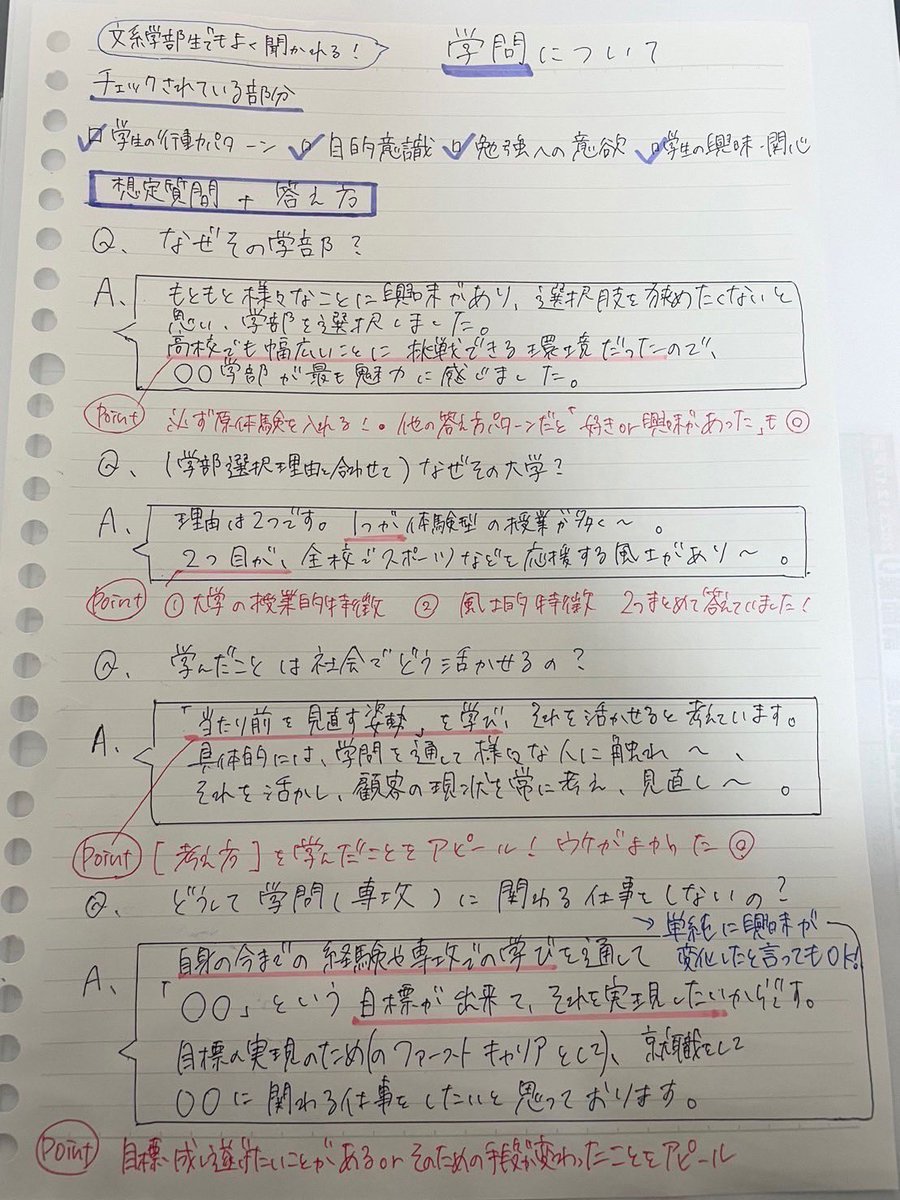 文系学部生でもよく聞かれる!
学問について
チェックされている部分
学生の行動パターン 目的意識 勉強への意欲 学生の興味・関心
想定質問 + 答え方
Q、なぜその学部?
A、もともと様々なことに興味があり、選択肢を狭めたくないと
思い、学部を選択しました。
高校でも幅広いことに挑戦できる環境だったので、
〇〇学部が最も魅力に感じました。
Point 必ず原体験を入れる!。他の答え方パターンだと「好きor興味があった」も◎
Q、(学部選択理由と合わせて)なぜその大学?
A、理由は2つです。1つが体験型の授業が多く〜。
2つ目が、全校でスポーツなどを応援する風土があり〜。
Point ①大学の授業的特徴 ②風土的特徴 2つまとめて答えていました!
Q、学んだことは社会でどう活かせるの?
A、「当たり前を見直す姿勢」を学び、それを活かせると考えています。
具体的には、学問を通して様々な人に触れ〜、
それを活かし、顧客の現状を常に考え、見直し〜。
Point [考え方]を学んだことをアピール!ウケがよかった◎
Q、どうして学問(専攻)に関わる仕事をしないの?
→単純に興味が
変化したと言ってもOK!
A、自身の今までの経験や専攻での学びを通して
「〇〇」という目標が出来て、それを実現したいからです。
目標の実現のため(のファーストキャリアとして)、就職をして
〇〇に関わる仕事をしたいと思っております。
Point 目標・成し遂げたいことがあるorそのための手段が変わったことをアピール